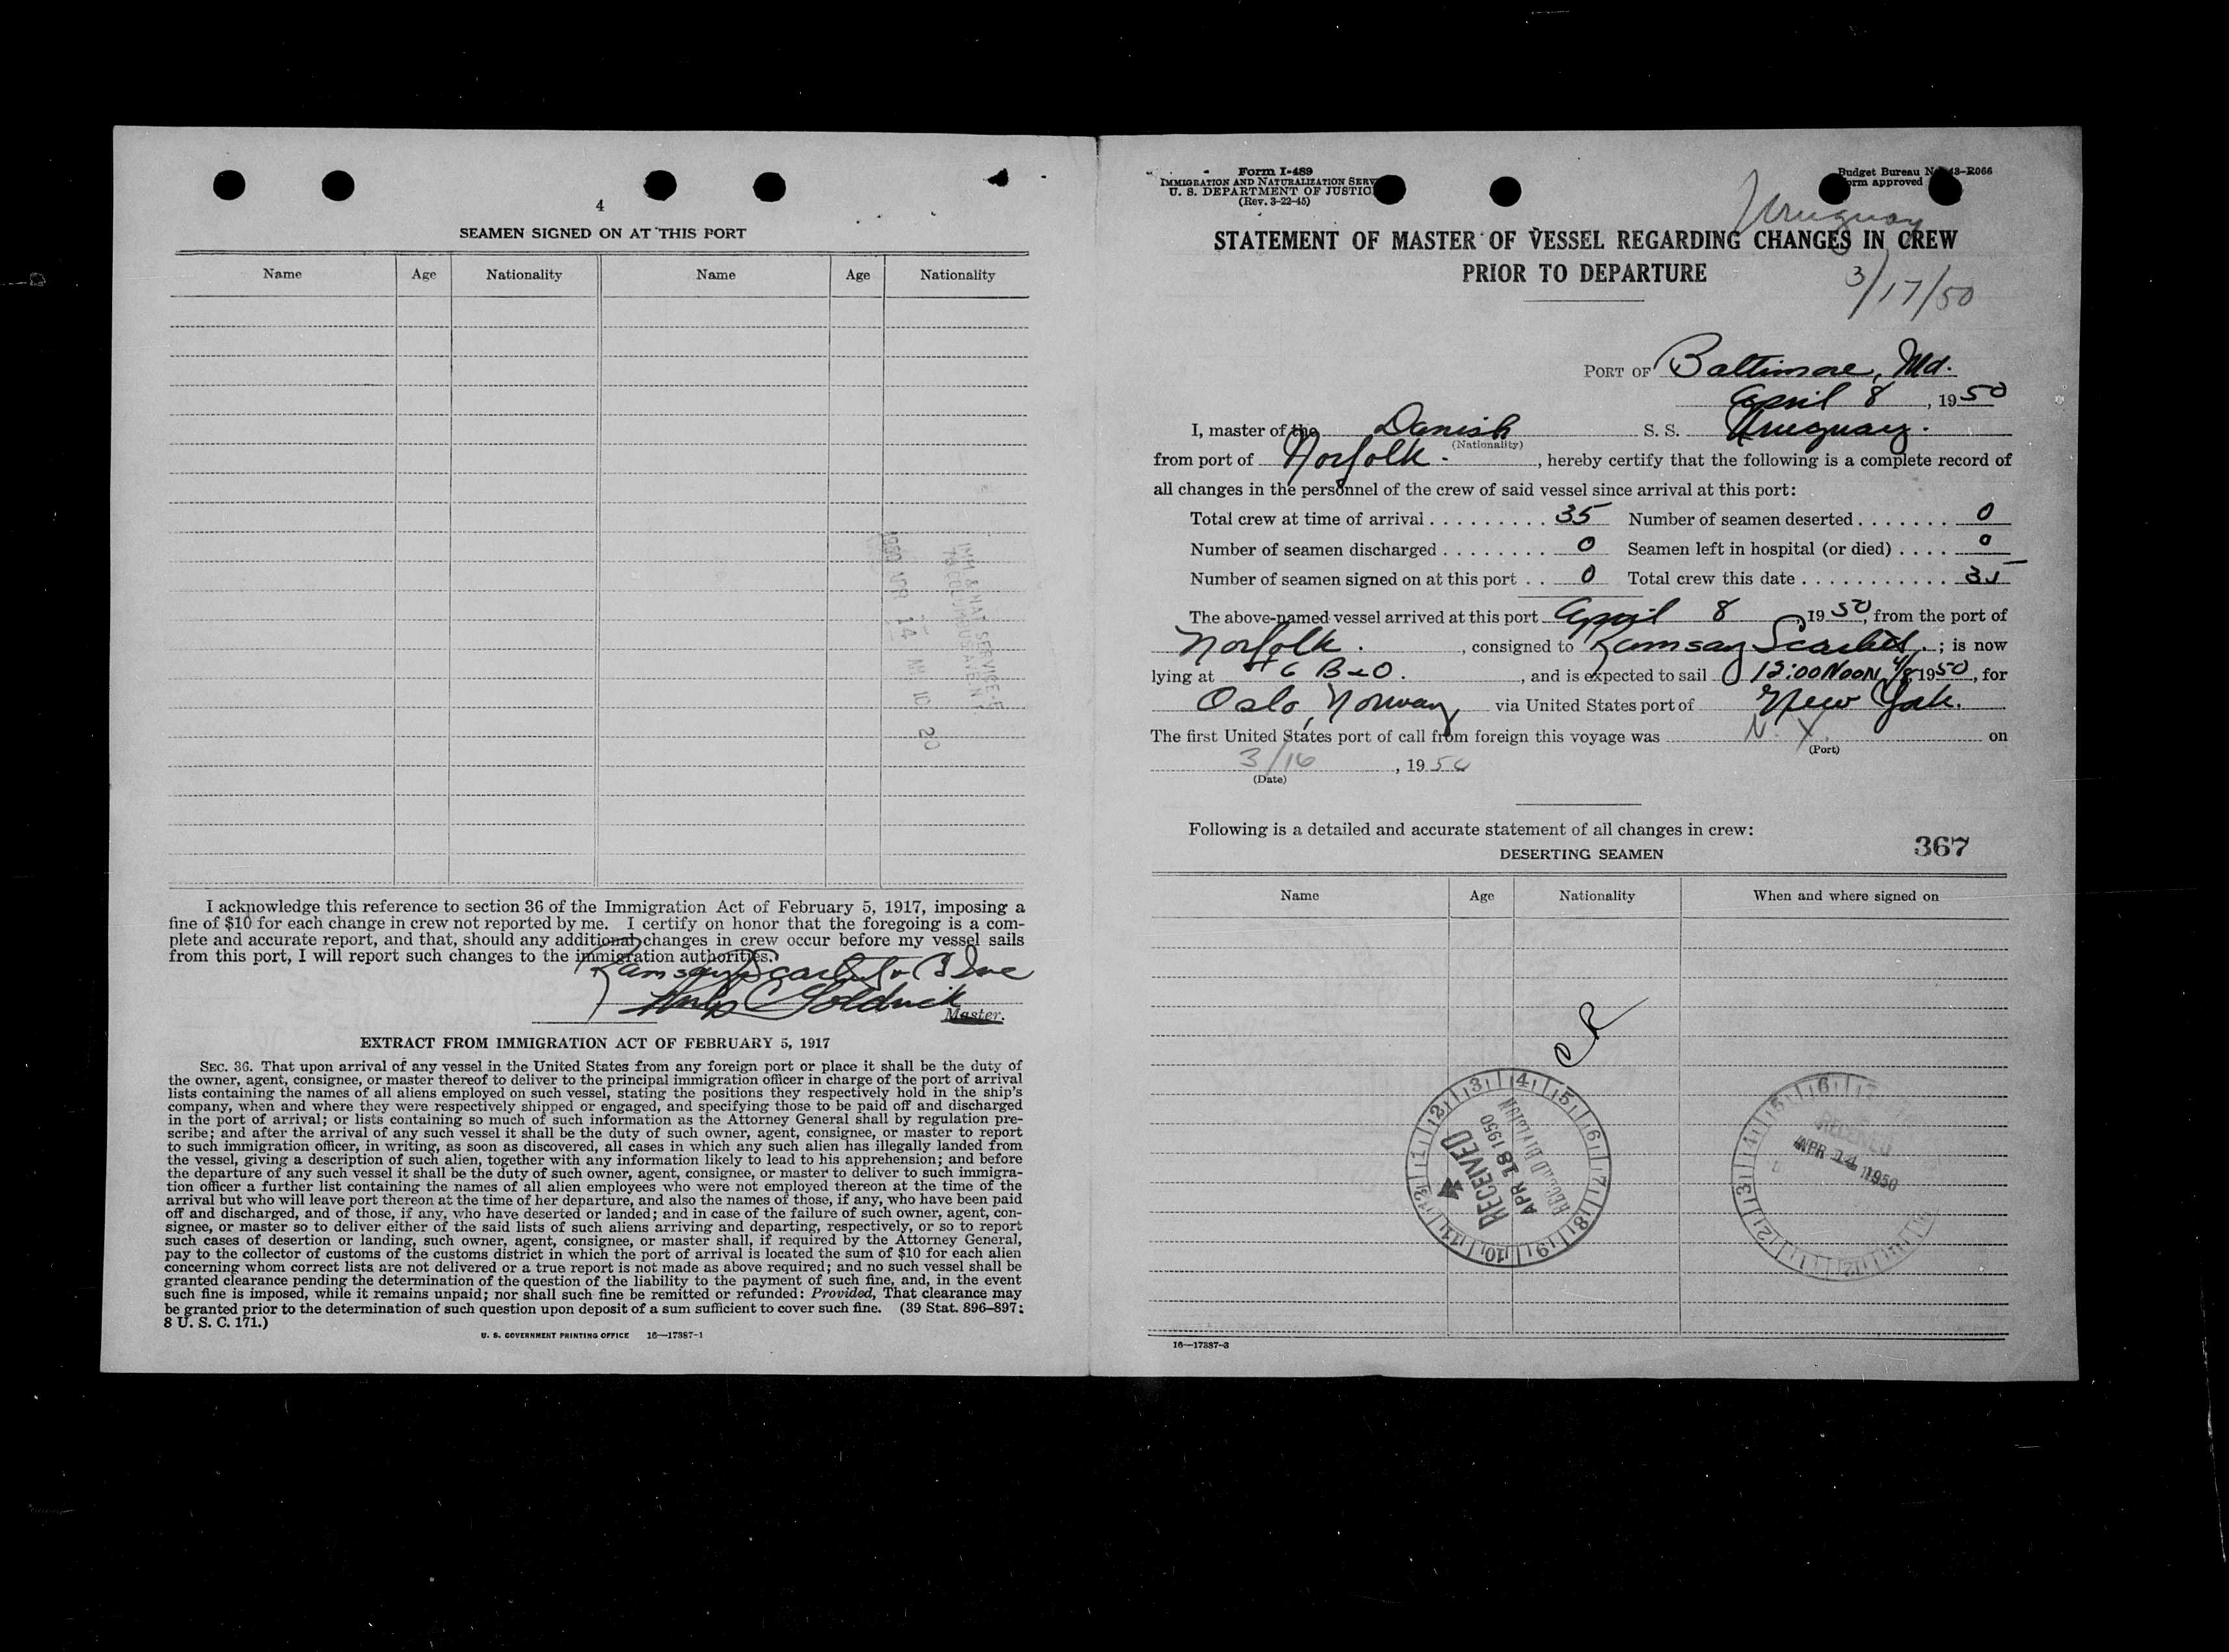 4
SEAMEN SIGNED ON AT THIS PORT
Name Age Nationality Name Age Nationality
IMM. & NAT. SERVICE
1950 APR 14 AM 10 20
I acknowledge this reference to section 36 of the Immigration Act of February 5, 1917, imposing a
fine of $10 for each change in crew not reported by me. I certify on honor that the foregoing is a com-
plete and accurate report, and that, should any additional changes in crew occur before my vessel sails
from this port, I will report such changes to the immigration authorities.
Ramsay Scarlett & Co Inc
Master.
EXTRACT FROM IMMIGRATION ACT OF FEBRUARY 5, 1917
SEC. 36. That upon arrival of any vessel in the United States from any foreign port or place it shall be the duty of
the owner, agent, consignee, or master thereof to deliver to the principal immigration officer in charge of the port of arrival
lists containing the names of all aliens employed on such vessel, stating the positions they respectively hold in the ship's
company, when and where they were respectively shipped or engaged, and specifying those to be paid off and discharged
in the port of arrival; or lists containing so much of such information as the Attorney General shall by regulation pre-
scribe; and after the arrival of any such vessel it shall be the duty of such owner, agent, consignee, or master to report
to such immigration officer, in writing, as soon as discovered, all cases in which any such alien has illegally landed from
the vessel, giving a description of such alien, together with any information likely to lead to his apprehension; and before
the departure of any such vessel it shall be the duty of such owner, agent, consignee, or master to deliver to such immigra-
tion officer a further list containing the names of all alien employees who were not employed thereon at the time of the
arrival but who will leave port thereon at the time of her departure, and also the names of those, if any, who have been paid
off and discharged, and of those, if any, who have deserted or landed; and in case of the failure of such owner, agent, con-
signee, or master so to deliver either of the said lists of such aliens arriving and departing, respectively, or so to report
such cases of desertion or landing, such owner, agent, consignee, or master shall, if required by the Attorney General,
pay to the collector of customs of the customs district in which the port of arrival is located the sum of $10 for each alien
concerning whom correct lists are not delivered or a true report is not made as above required; and no such vessel shall be
granted clearance pending the determination of the question of the liability to the payment of such fine, and, in the event
such fine is imposed, while it remains unpaid; nor shall such fine be remitted or refunded: Provided, That clearance may
be granted prior to the determination of such question upon deposit of a sum sufficient to cover such fine. (39 Stat. 896–897;
8 U. S. C. 171.)
U. S. GOVERNMENT PRINTING OFFICE 16—17387-1
Form I-489
IMMIGRATION AND NATURALIZATION SERV
U. S. DEPARTMENT OF JUSTIC
(Rev. 3-22-45)
Budget Bureau N 43-R066
orm approved
Uruguay
STATEMENT OF MASTER OF VESSEL REGARDING CHANGES IN CREW
PRIOR TO DEPARTURE
3/17/50
PORT OF Baltimore, Md.
April 8, 1950
I, master of the Danish S. S. Uruguay.
(Nationality)
from port of Norfolk., hereby certify that the following is a complete record of
all changes in the personnel of the crew of said vessel since arrival at this port:
Total crew at time of arrival . . . . . . . . . 35 Number of seamen deserted . . . . . . . 0
Number of seamen discharged . . . . . . . . 0 Seamen left in hospital (or died) . . . . 0
Number of seamen signed on at this port . . 0 Total crew this date . . . . . . . . . . . 35
The above-named vessel arrived at this port April 8 1950, from the port of
Norfolk., consigned to Ramsay Scarlett.; is now
lying at #6 B&O., and is expected to sail 12:00 Noon 4/8 1950, for
Oslo, Norway via United States port of New York.
The first United States port of call from foreign this voyage was N. Y. on
(Port)
3/16, 1950
(Date)
Following is a detailed and accurate statement of all changes in crew:
367
DESERTING SEAMEN
Name Age Nationality When and where signed on
RECEIVED
APR 18 1950
RECORD DIVISION
RECEIVED
APR 14 1950
16—17387-3